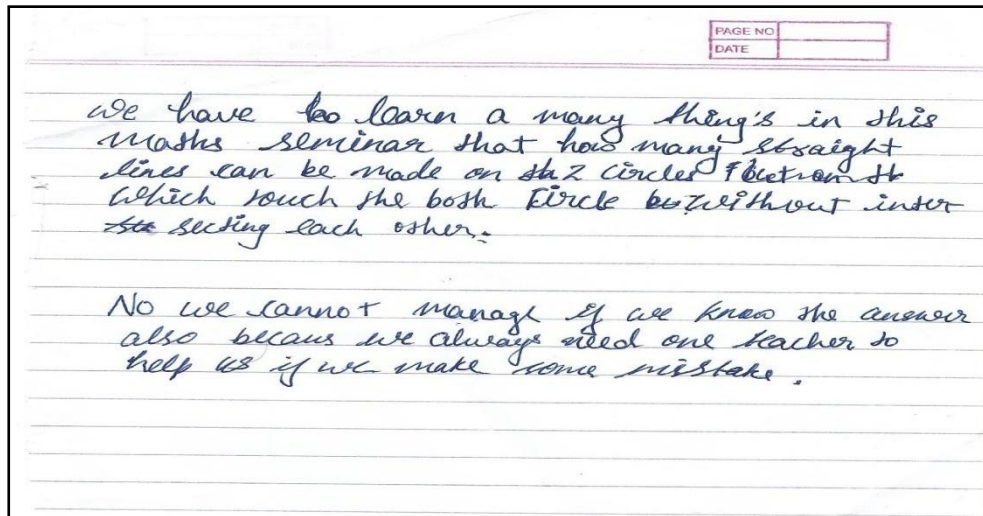 PAGE NO
DATE
we have to learn a many thing's in this
maths seminar that how many straight
lines can be made on 2 circles
which touch the both circle without inter
secting each other.
No we cannot manage if we know the answer
also becaus we always need one teacher to
help us if we make some mistake.